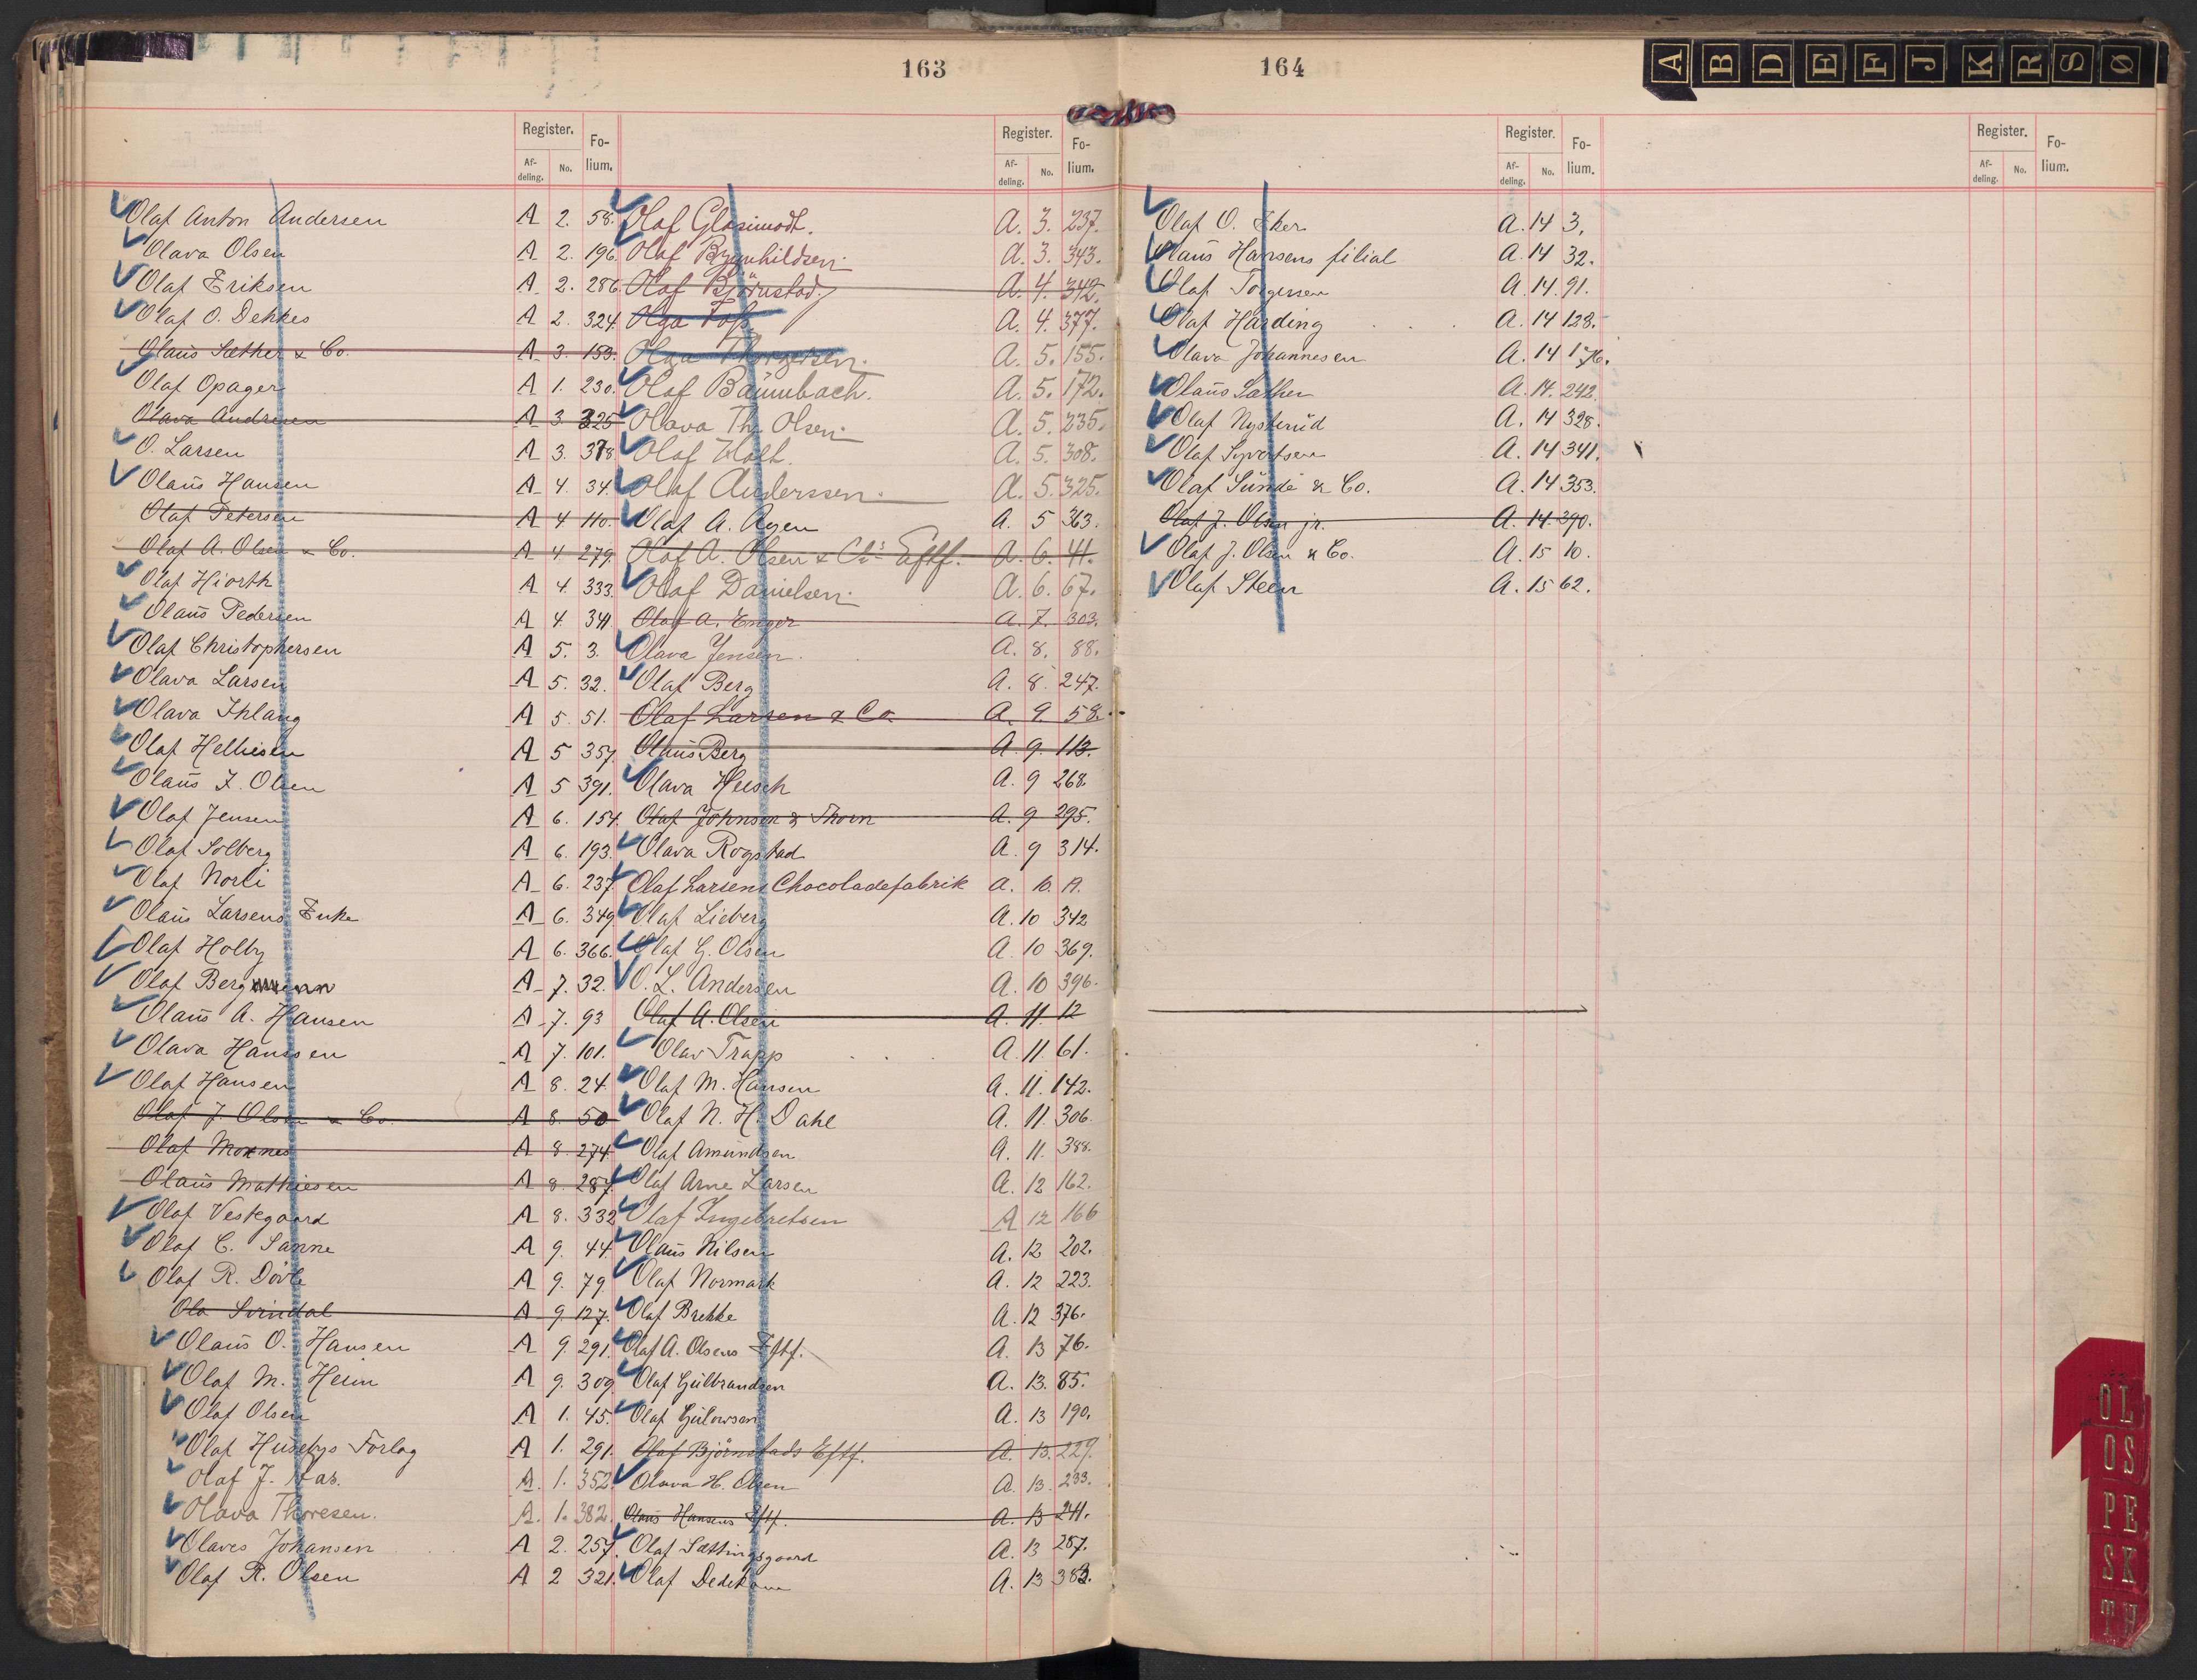 163
Register.
Fo-
lium.
Af-
deling.
No.
Olaf Anton Andersen A 2. 58.
Olava Olsen A 2. 196.
Olaf Eriksen A 2. 286.
Olaf O. Dehkes A 2. 324.
Olaus Sæther & Co. A 3. 153.
Olaf Opager A 1. 230.
Olava Andresen A 3. 325
O. Larsen A 3. 378
Olaus Hansen A 4. 34.
Olaf Petersen A 4 110.
Olaf A. Olsen & Co. A 4 279.
Olaf Hiorth A 4. 333.
Olaus Pedersen A 4. 341
Olaf Christophersen A 5. 3.
Olava Larsen A 5. 32.
Olava Ihlang A 5. 51.
Olaf Helliesen A 5 357.
Olaus I. Olsen A 5 391.
Olaf Jensen A 6. 154.
Olaf Solberg A 6. 193.
Olaf Norli A 6. 237.
Olaus Larsens Enke A 6. 349
Olaf Holby A 6. 366.
Olaf Berg A 7. 32.
Olaus A. Hansen A 7. 93
Olava Hanssen A 7. 101.
Olaf Hansen A 8. 24.
Olaf J. Olsen & Co. A 8. 50
Olaf Moxnes A 8. 274.
Olaus Mathiesen A 8. 287.
Olaf Vestegaard A 8. 332
Olaf C. Sanne A 9. 44.
Olaf R. Dövle A 9. 79
Ola Svindal A 9. 127.
Olaus O. Hansen A 9. 291.
Olaf M. Heim A 9. 309
Olaf Olsen A 1. 45.
Olaf Husebys Forlag A 1. 291.
Olaf J. A. 1. 352.
Olava Thoresen. A. 1. 382.
Olaves Johansen A 2. 257.
Olaf R. Olsen A 2 321.
Register.
Fo-
lium.
Af-
deling.
No.
Olaf Glosimodt. A. 3. 237.
Olaf Brynhildsen. A. 3. 343.
Olaf Björnstad. A. 4. 342.
Olga Foss A. 4. 377.
Olga Thorgersen. A. 5. 155.
Olaf Baumbach. A. 5. 172.
Olava Th. Olsen. A. 5. 235.
Olaf Holt. A. 5. 308.
Olaf Anderssen. A. 5. 325.
Olaf A. Ryen A. 5 363.
Olaf A. Olsen & Co's Eftf. A. 6. 41.
Olaf Danielsen. A. 6. 67.
Olaf A. Enger A. 7. 303.
Olava Jensen. A. 8. 88.
Olaf Berg A. 8. 247.
Olaf Larsen & Co. A. 9. 58.
Olaus Berg A. 9. 113.
Olava Heisch A. 9 268.
Olaf Johnsen & Thorn A. 9 295.
Olava Rogstad A. 9 314.
Olaf Larsens Chocoladefabrik A. 10. 19.
Olaf Lieberg A. 10 342
Olaf G. Olsen A. 10 369.
O. L. Andersen A. 10 396.
Olaf A. Olsen A. 11. 12
Olav Trapp A. 11. 61.
Olaf M. Hansen A. 11. 142.
Olaf N. H. Dahl A. 11. 306.
Olaf Amundsen A. 11. 388.
Olaf Arne Larsen A. 12 162.
Olaf Ingebretsen A 12 166
Olaus Nilsen A. 12 202.
Olaf Normark A. 12 223.
Olaf Brekke A. 12 376.
Olaf A. Olsens Eftf. A. 13 76.
Olaf Gulbrandsen A. 13. 85.
Olaf Gulowsen A. 13 190.
Olaf Björnstads Eftf. A. 13. 229.
Olava H. Olsen A. 13. 233.
Olaus Hansens Eftf. A. 13 241.
Olaf Sættingsgaard A. 13 287.
Olaf Dedekam A. 13 383.
164
Register.
Fo-
lium.
Af-
deling.
No.
Olaf O. Eker A. 14 3.
Olaus Hansens filial A. 14 32.
Olaf Torgersen A. 14. 91.
Olaf Harding A. 14 128.
Olava Johannesen A. 14 176.
Olaus Sæther A. 14. 242.
Olaf Nysterud A. 14 328.
Olaf Syvertsen A. 14 341.
Olaf Sunde & Co. A. 14 353.
Olaf J. Olsen jr. A. 14. 390.
Olaf J. Olsen & Co. A. 15 10.
Olaf Steen A. 15 62.
Register.
Fo-
lium.
Af-
deling.
No.
A B D E F J K R S Ø
OL
OS
PE
SK
TH